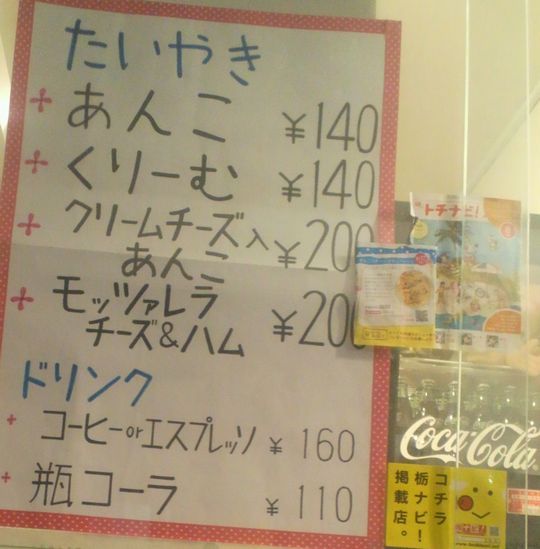 たいやき
あんこ ¥140
くりーむ ¥140
クリームチーズ入
あんこ ¥200
モッツァレラ
チーズ&ハム ¥200
ドリンク
コーヒーorエスプレッソ ¥160
瓶コーラ ¥110
トチナビ!
Coca-Cola
コチラ
栃ナビ!
掲載店。